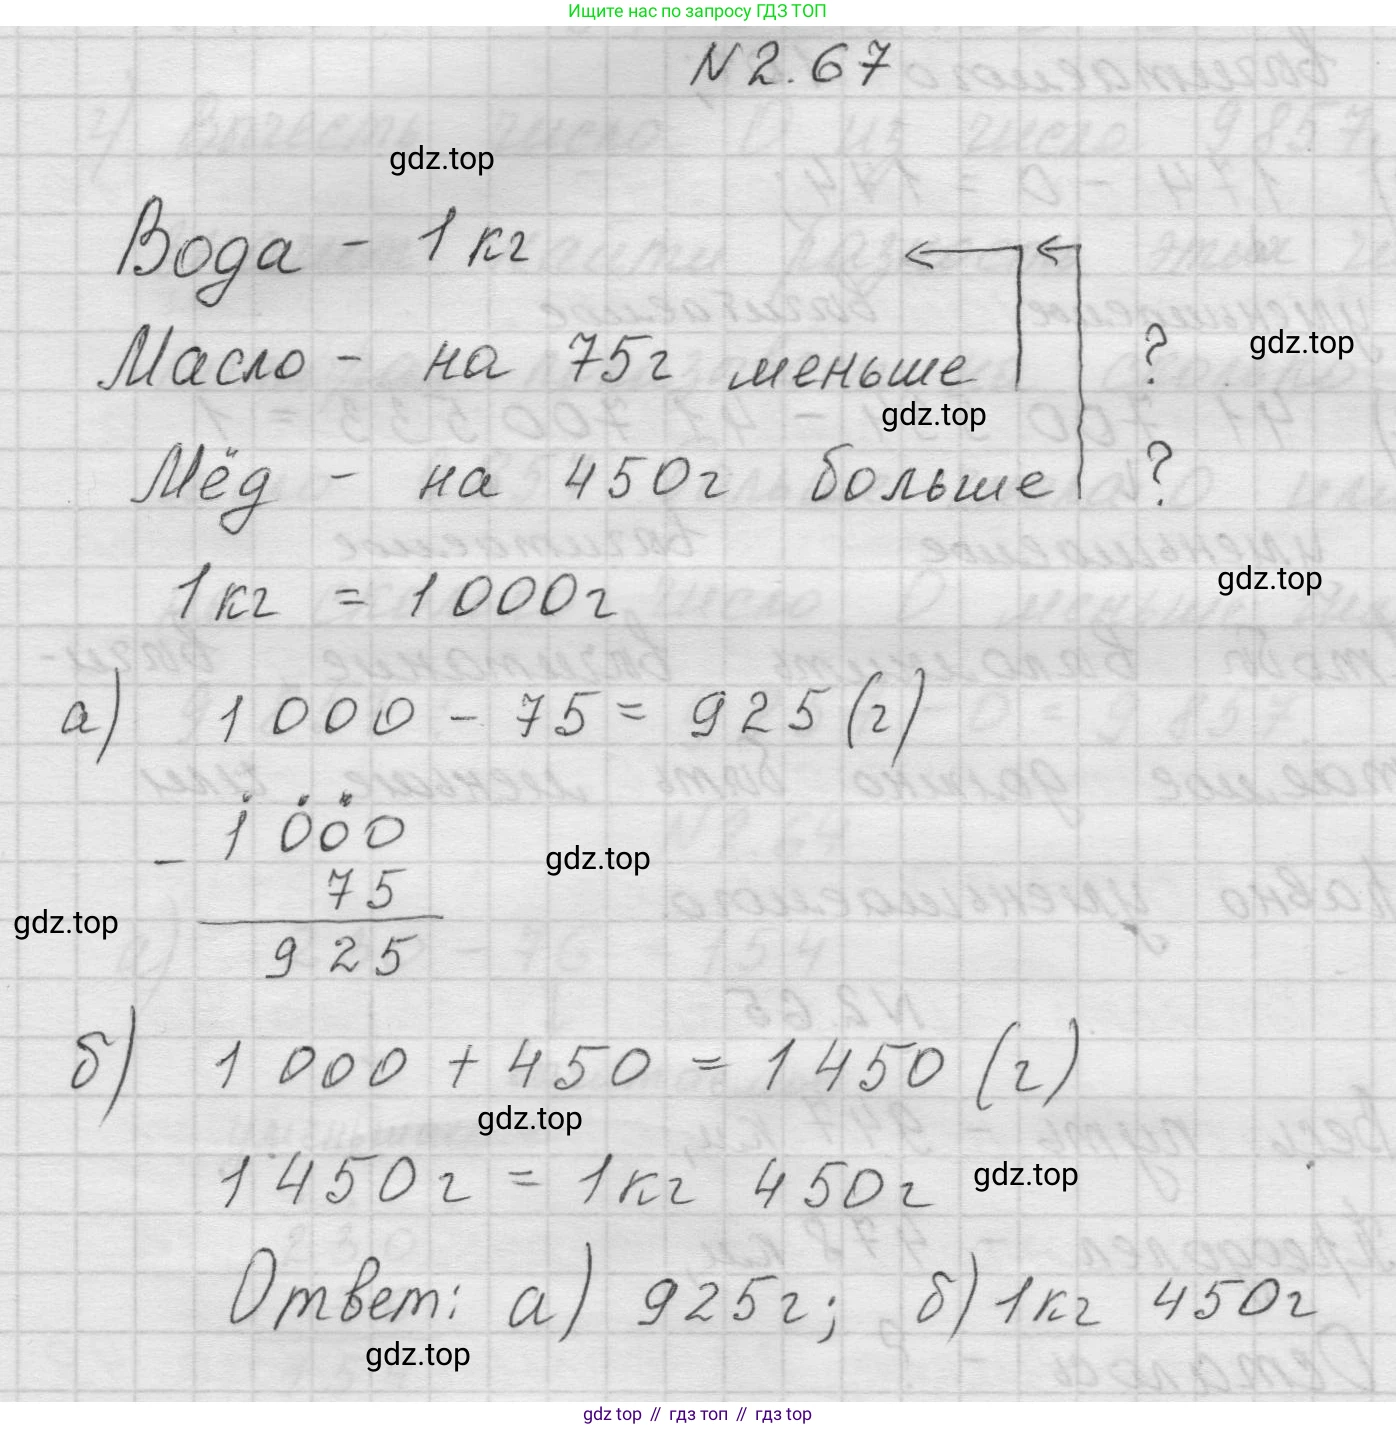 Ищите нас по запросу ГДЗ ТОП
N 2.67
gdz.top
Вода - 1 кг
Масло - на 75г меньше ?
gdz.top
gdz.top
Мёд - на 450г больше ?
1кг = 1000г
gdz.top
а) 1000 - 75 = 925 (г)
- 1000
gdz.top
75
gdz.top
925
б) 1000 + 450 = 1450 (г)
gdz.top
1450г = 1кг 450г
gdz.top
Ответ: а) 925г; б) 1кг 450г
gdz.top
gdz top // гдз топ // гдз top